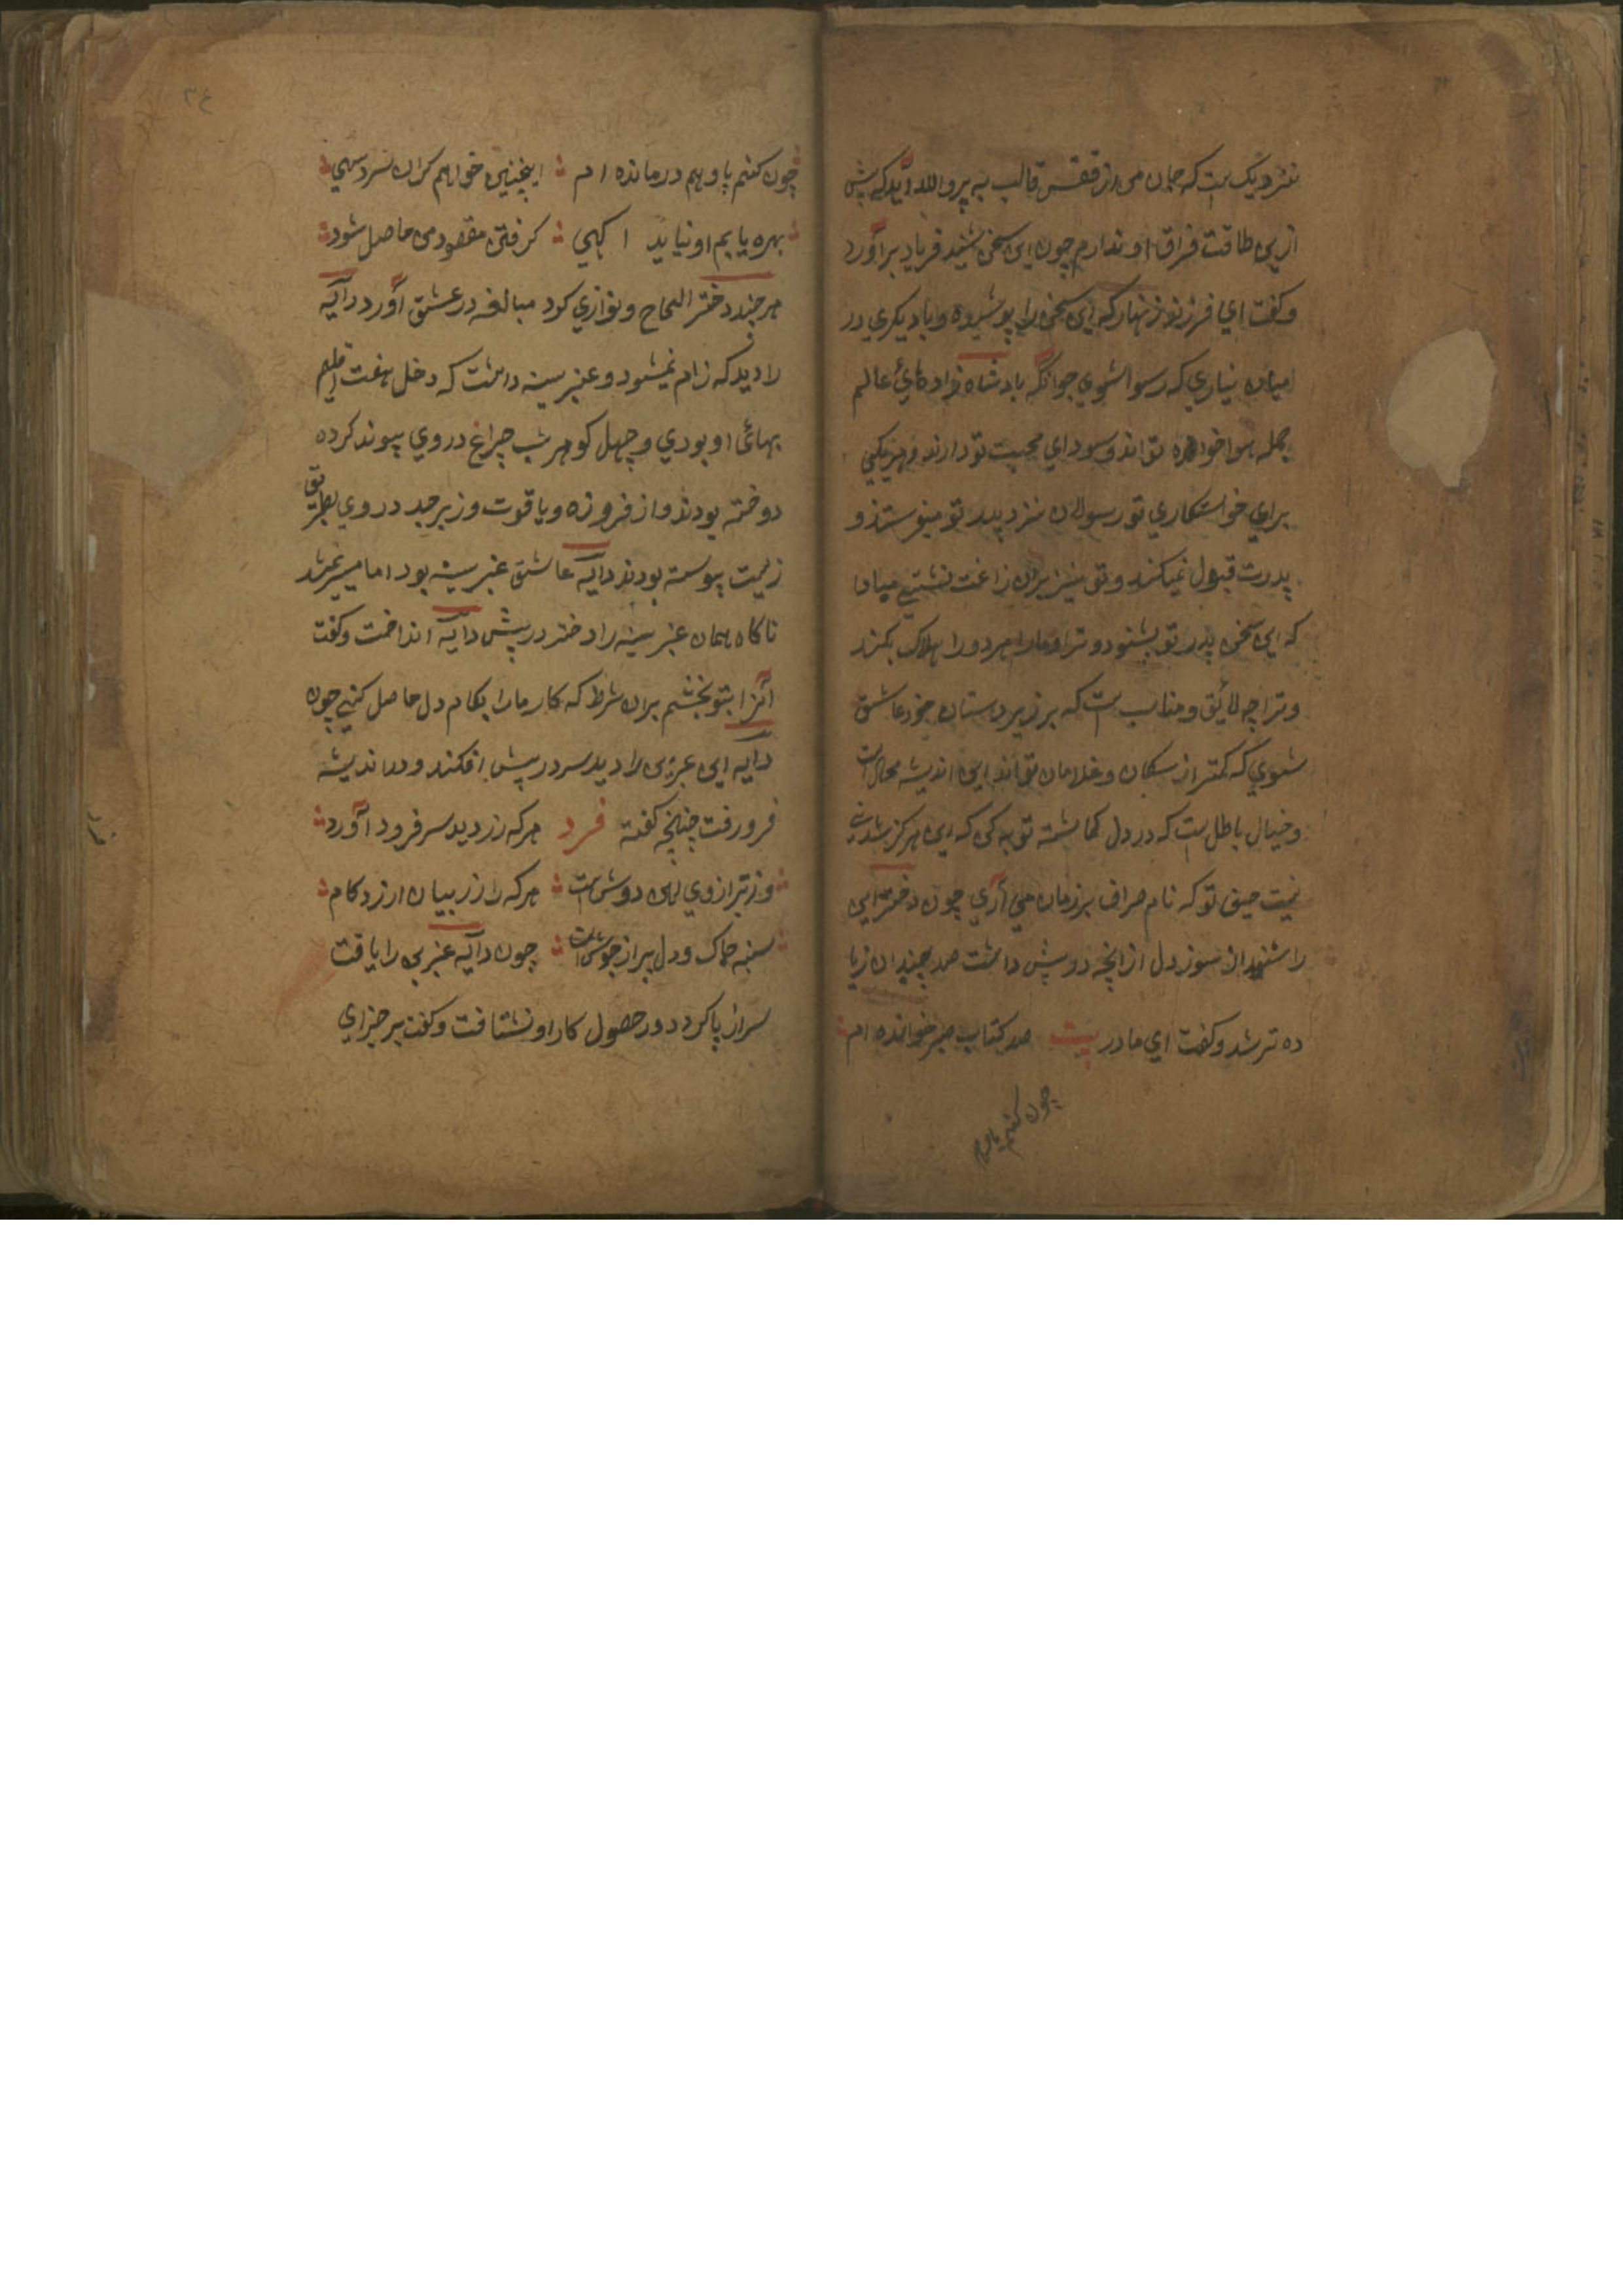 نزدیک ست که جان من از قفس قالب به پرو الله آید که پیش
ازین طاقت فراق او ندارم چون این سخن شنید فریاد برآورد
و کفت ای فرزند زنهار که این سخن را پوشیده و با دیکری در
میان نیاری که رسوا شوی جوانکه بادشاه زاده های عالم
جمله هوا خواه تو اند و سودای محبت تو دارند و هر یکی
برای خواستکاری تو رسولان نزد پدر تو میفرستند و
پدرت قبول نمیکند و تو نیز بران راغب نشتی مبادا
که این سخن پدر تو بشنود و ترا و مارا هر دو را هلاک بکند
و ترا چه لائق و مناسب ست که بر زیر دستان خود عاشق
شوی که کمتر از سکان و غلامان تو اند این اندیشه محال ست
و خیال باطل ست که در دل کماشته توبه کن که این هرکز شدنی
نیست حیف تو که نام صراف بر زبان می آری چون دختر این
را شنید ان سوز دل از انچه در پیش داشت صد چندان زیا
ده تر شد و کفت ای مادر بیت صد کتاب صبر خوانده ام
چون کنم پا و هم
چون کنم پا و هم درمانده ام اینچنین خواهم کزان سرو سهی
بهره یابم او نیابد اکهی کر فتن مقصود من حاصل شود
هر چند دختر الحاح و نوازی کرد مبالغه در عشق آورد دایه
را دید که رام نمیشود و عنبرسینه داشت که دخل هفت اقلیم
بهائ او بودی و چهل کوهر شب چراغ در وی پیوند کرده
دوخته بودند و از فروزه و یاقوت و زبرجد در وی بطریق
زینت پیوسته بودند دایه عاشق عنبرسینه بود اما میسر نمیشد
ناکاه همان عنبرسینه را دختر در پیش دایه انداخت و کفت
آنرا بتو بخشم بران شرط که کار مارا بکام دل حاصل کنی چون
دایه این عزیزی را دید سر در پیش افکند و در اندیشه
فرو رفت چنانچه کفته فرد هر که زر دید سر فرود آورد
ور ترازوی اهن دوش ست هر که را زر بیان ارزد کام
سینه چاک و دل پر از جوش ست چون دایه عنبرین را یافت
سر از پا کرد و در حصول کار او نشتافت و کفت بر جزای